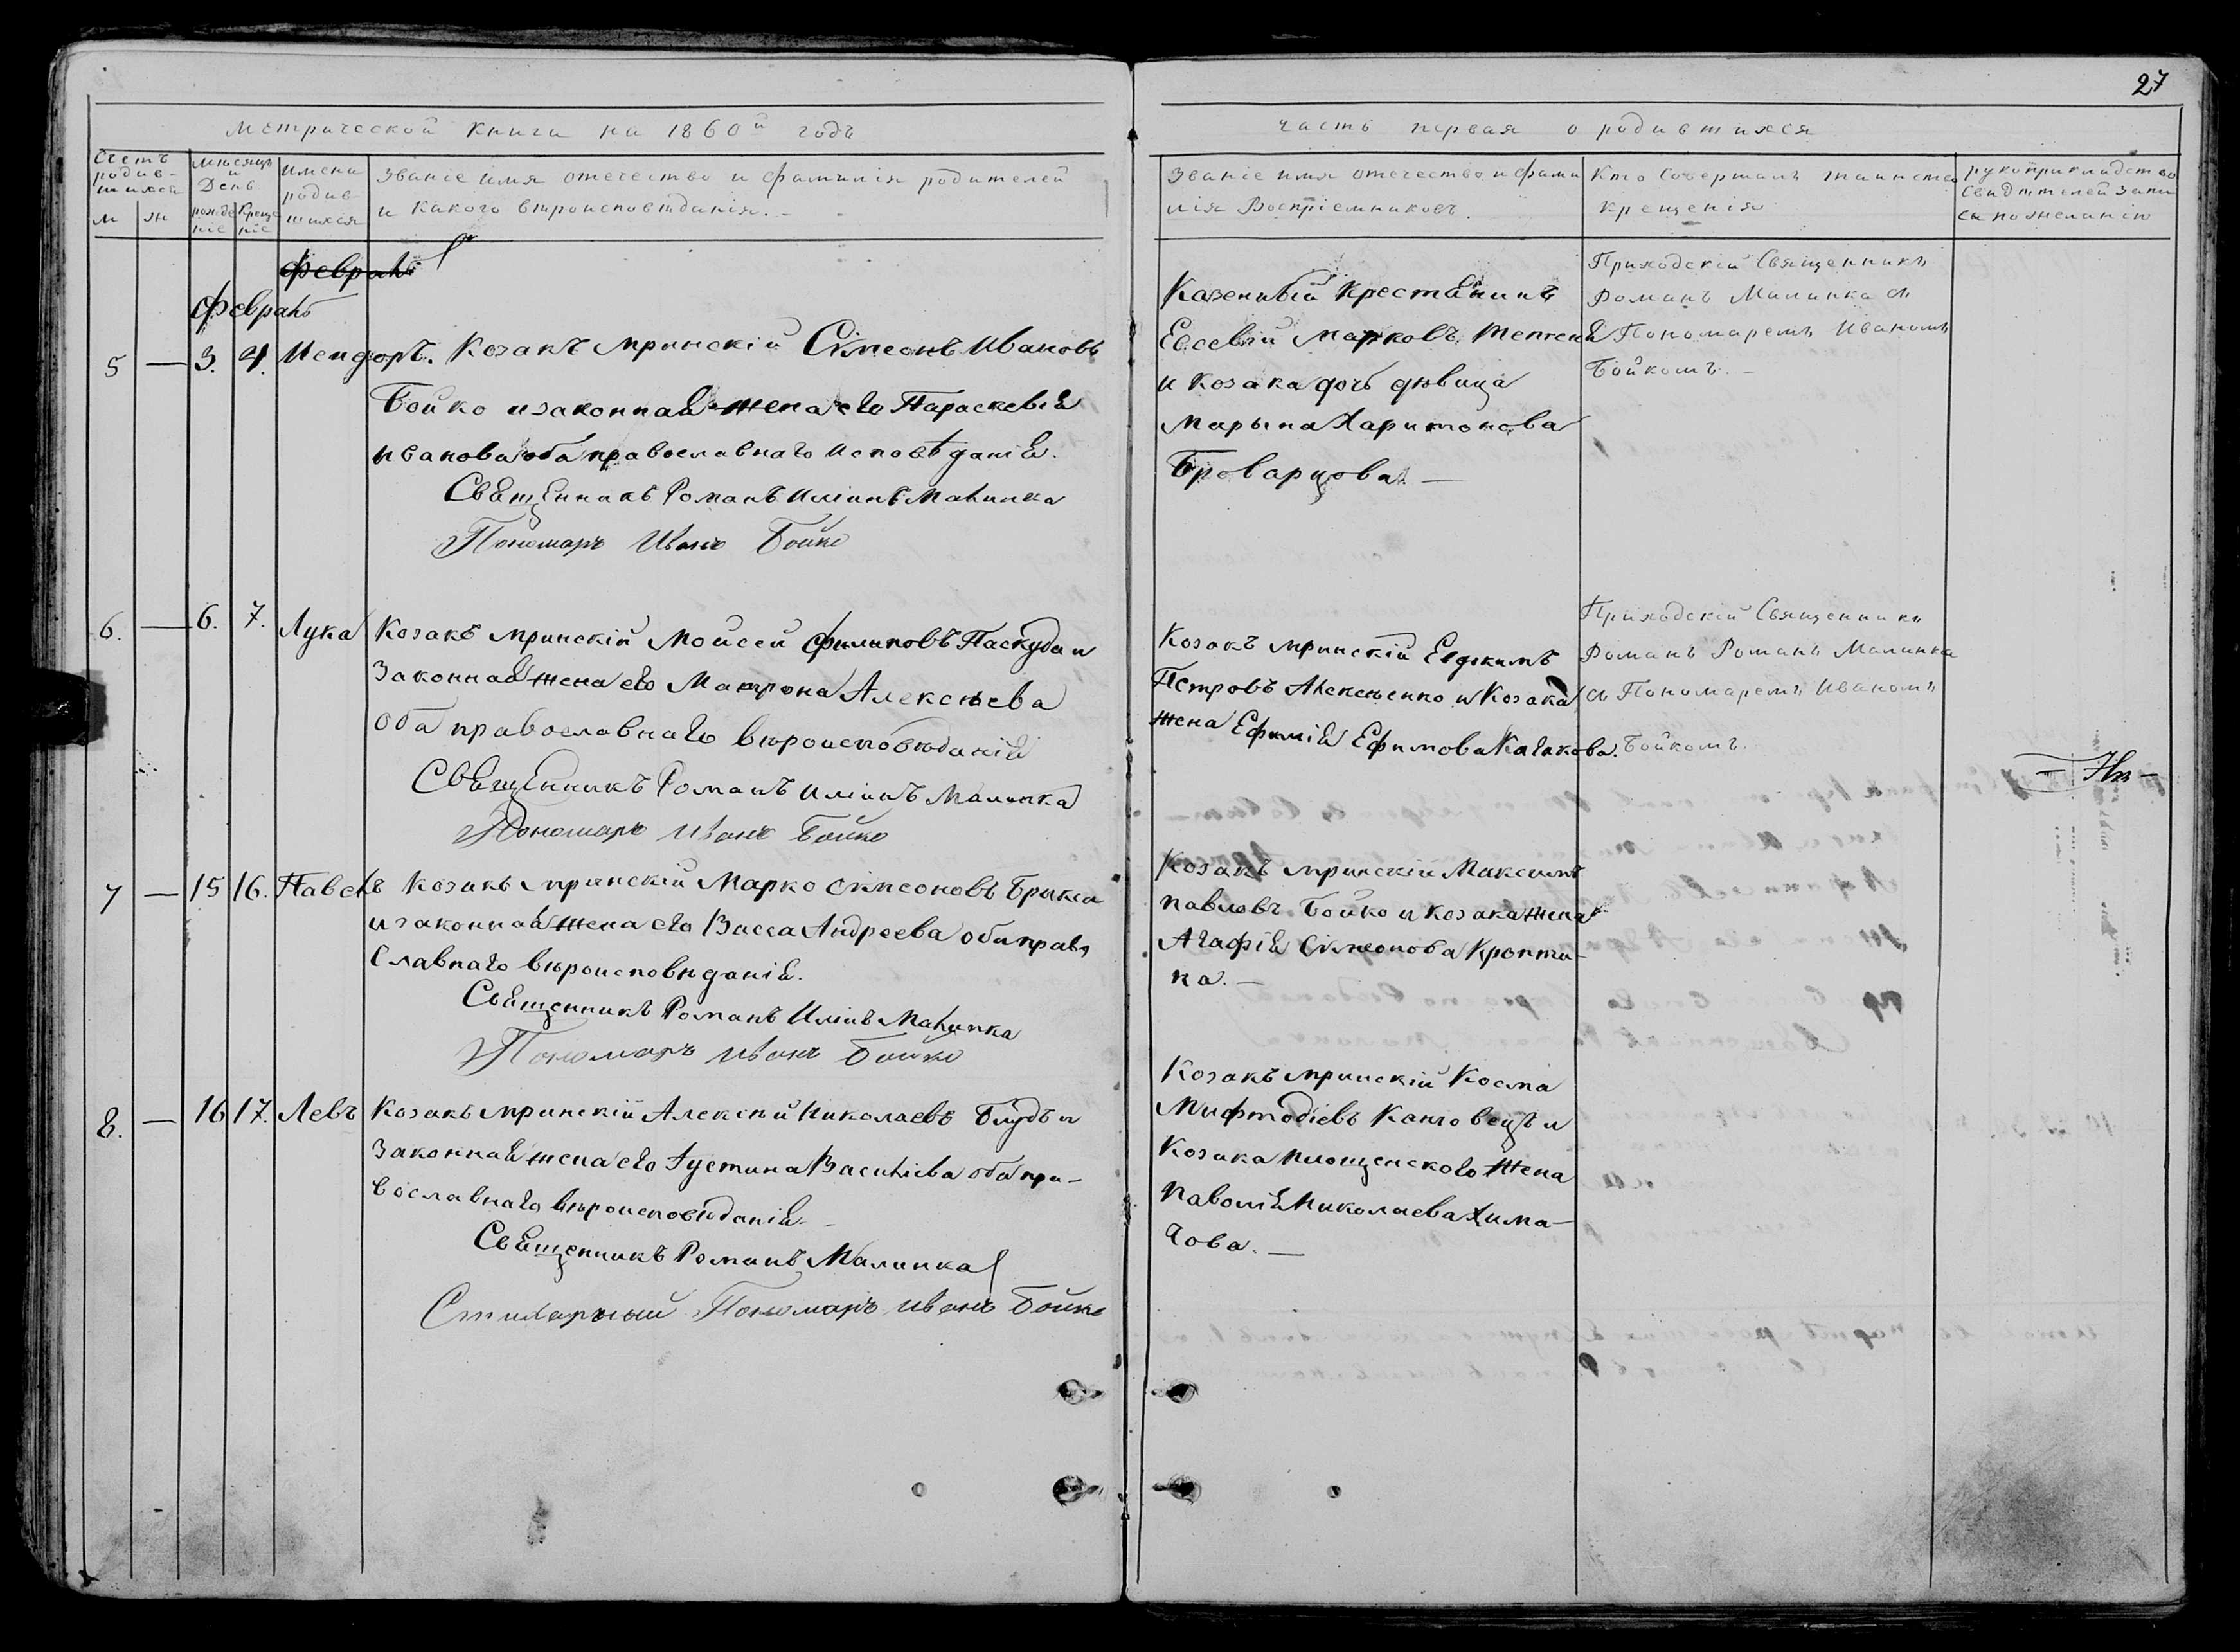 27
Метрической книги на 1860й годъ
Часть первая о родившихся
Счетъ родив-шихся
м
ж
Мѣсяцъ и День
рожде ніе
Креще ніе
имена родив шихся
Званіе имя отечество и фамилія родителей
и какого вѣроисповѣданія. -
Званіе имя отечество и фами
лія Воспріемниковъ.
Кто Совершалъ таинство
крещенія
рукоприкладство
Свидѣтелей запи
си по желанію
Февраль
Февраль
5 — 3. 4. Исидоръ. Козакъ мринскій Сімеонъ Ивановъ
Бойко и законная жена его Параскевія
иванова оба православнаго исповѣданія.
Священникъ Романъ Иліинъ Малинка
Пономарь Иванъ Бойко
Казенный крестянинъ
Евсевій Марковъ
и козака дочь дѣвица
Марына Харитонова
Броварцова. —
Приходскій Священникъ
Романъ Малинка съ
Пономаремъ Иваномъ
Бойкомъ. -
6. — 6. 7. Лука Козакъ мринскій Моисей Филиповъ Паскуда и
Законная жена его Матрона Алексѣева
оба православнаго вѣроисповѣданія
Священникъ Романъ Иліинъ Малинка
Пономарь Иванъ Бойко
Козакъ мринскій Евдокимъ
Петровъ Алексѣенко и Козака
жена Ефимія Ефимова Качакова.
Приходскій Священникъ
Романъ Романъ Малинка
съ Пономаремъ Иваномъ
Бойкомъ.
7 — 15 16. Павелъ Козакъ мринскій Марко Сімеоновъ Брикса
и законная жена его Васса Андреева оба право
славнаго вѣроисповѣданія.
Священникъ Романъ Иліинъ Малинка
Пономарь Иванъ Бойко
Козакъ мринскій Максимъ
павловъ Бойко и козака жена
Агафія Сімеонова Кропти-
на. —
8. — 16 17. Левъ Козакъ мринскій Алексѣй Николаевъ Блудъ и
Законная жена его Іустина Василіева оба пра-
вославнаго вѣроисповѣданія. -
Священникъ Романъ Малинка
Стихарный Пономарь Иванъ Бойко
Козакъ мринскій Косма
Мифтодіевъ Канговецъ и
Козака площенского жена
Паволія Николаева Хима-
чова. —